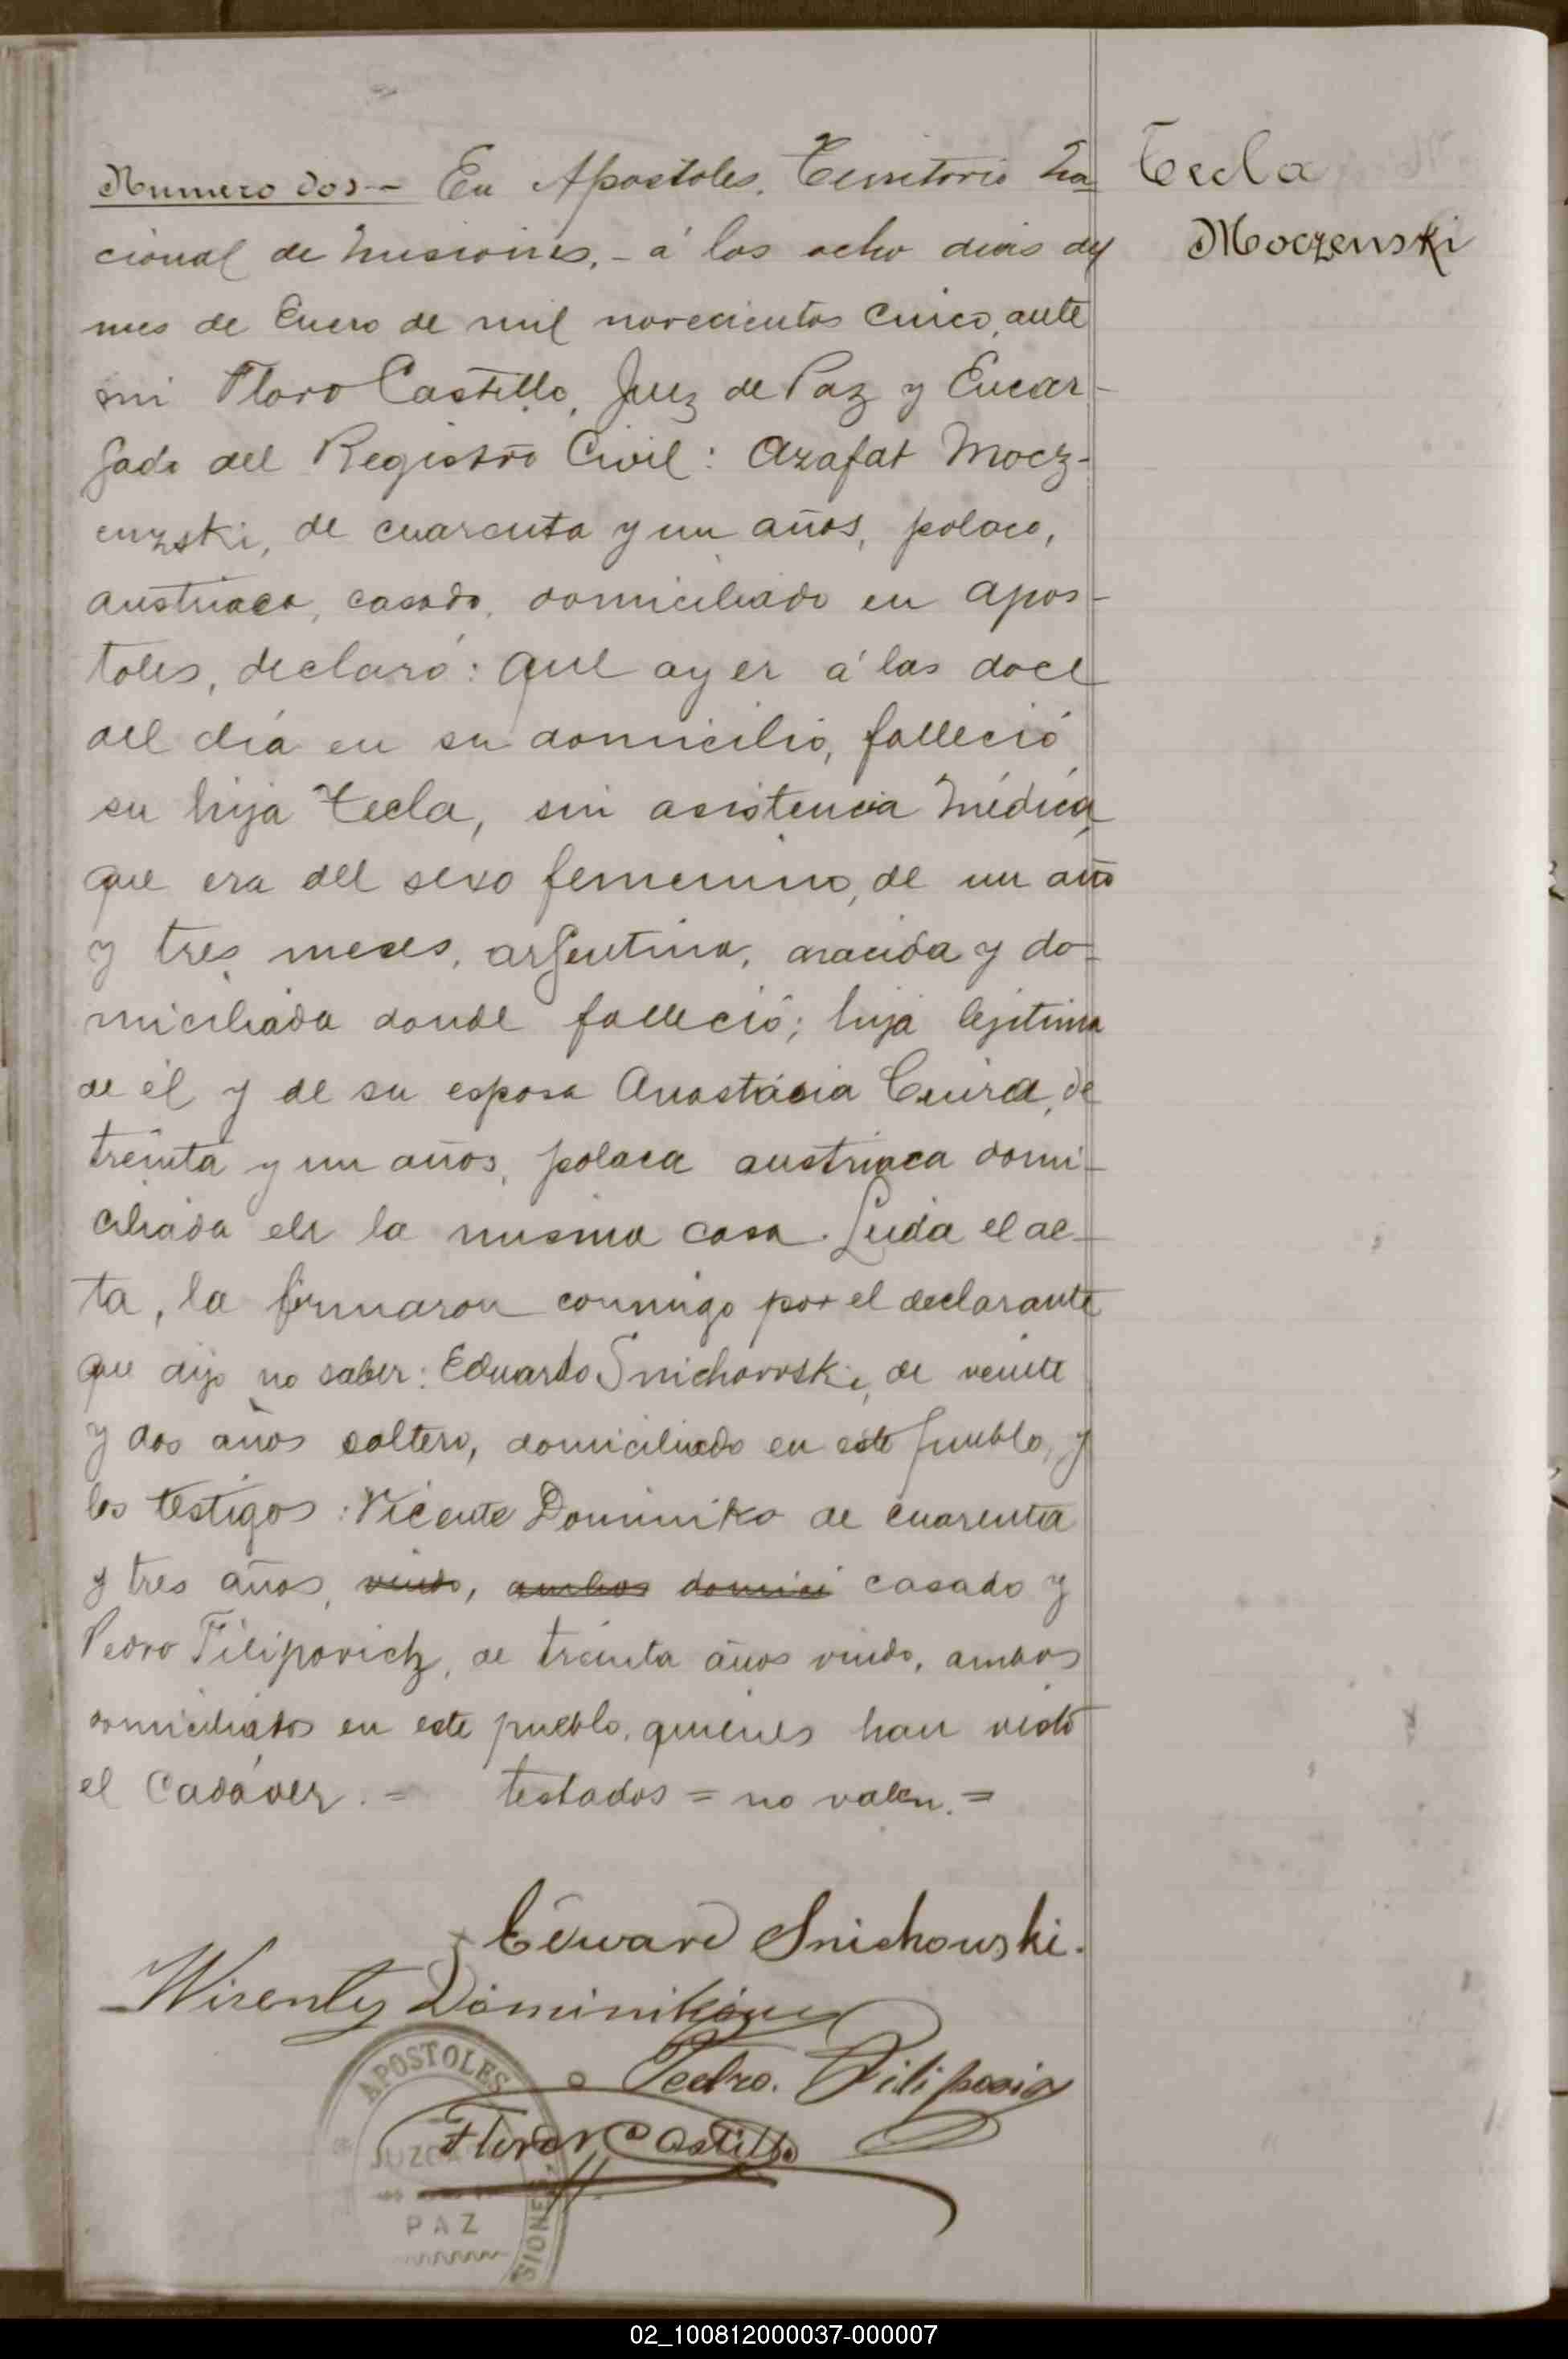 Numero dos-- En Apostoles. Territorio Na
Tecla
Moczenski
cional de Misiones.- á los ocho dias del
mes de Enero de mil novecientos cinco, ante
mi Floro Castillo, Juez de Paz y Encar-
gado del Registro Civil: Azafat Mocz-
enzski, de cuarenta y un años, polaco,
austriaco, casado, domiciliado en Apos-
toles, declaró: que ayer á las doce
del día en su domicilio, falleció
su hija Tecla, sin asistencia médica,
que era del sexo femenino, de un año
y tres meses, argentina, nacida y do-
miciliada donde falleció; hija lejitima
de él y de su esposa Anastácia de
treinta y un años, polaca austriaca domi-
ciliada en la misma casa. Leida el ac-
ta, la firmaron conmigo por el declarante
que dijo no saber: Eduardo Snichovski, de veinte
y dos años soltero, domiciliado en este pueblo, y
los testigos: Vicente Dominiko de cuarenta
y tres años, viudo, ambos domici casado y
Pedro Filipovich, de treinta años viudo, ambos
domiciliados en este pueblo, quienes han visto
el Cadáver. = testados = no valen. =
Edward Snichowski.
Wicenty
Pedro.
Floro Castillo
APOSTOLES
JUZ
PAZ
SIONES
02_100812000037-000007